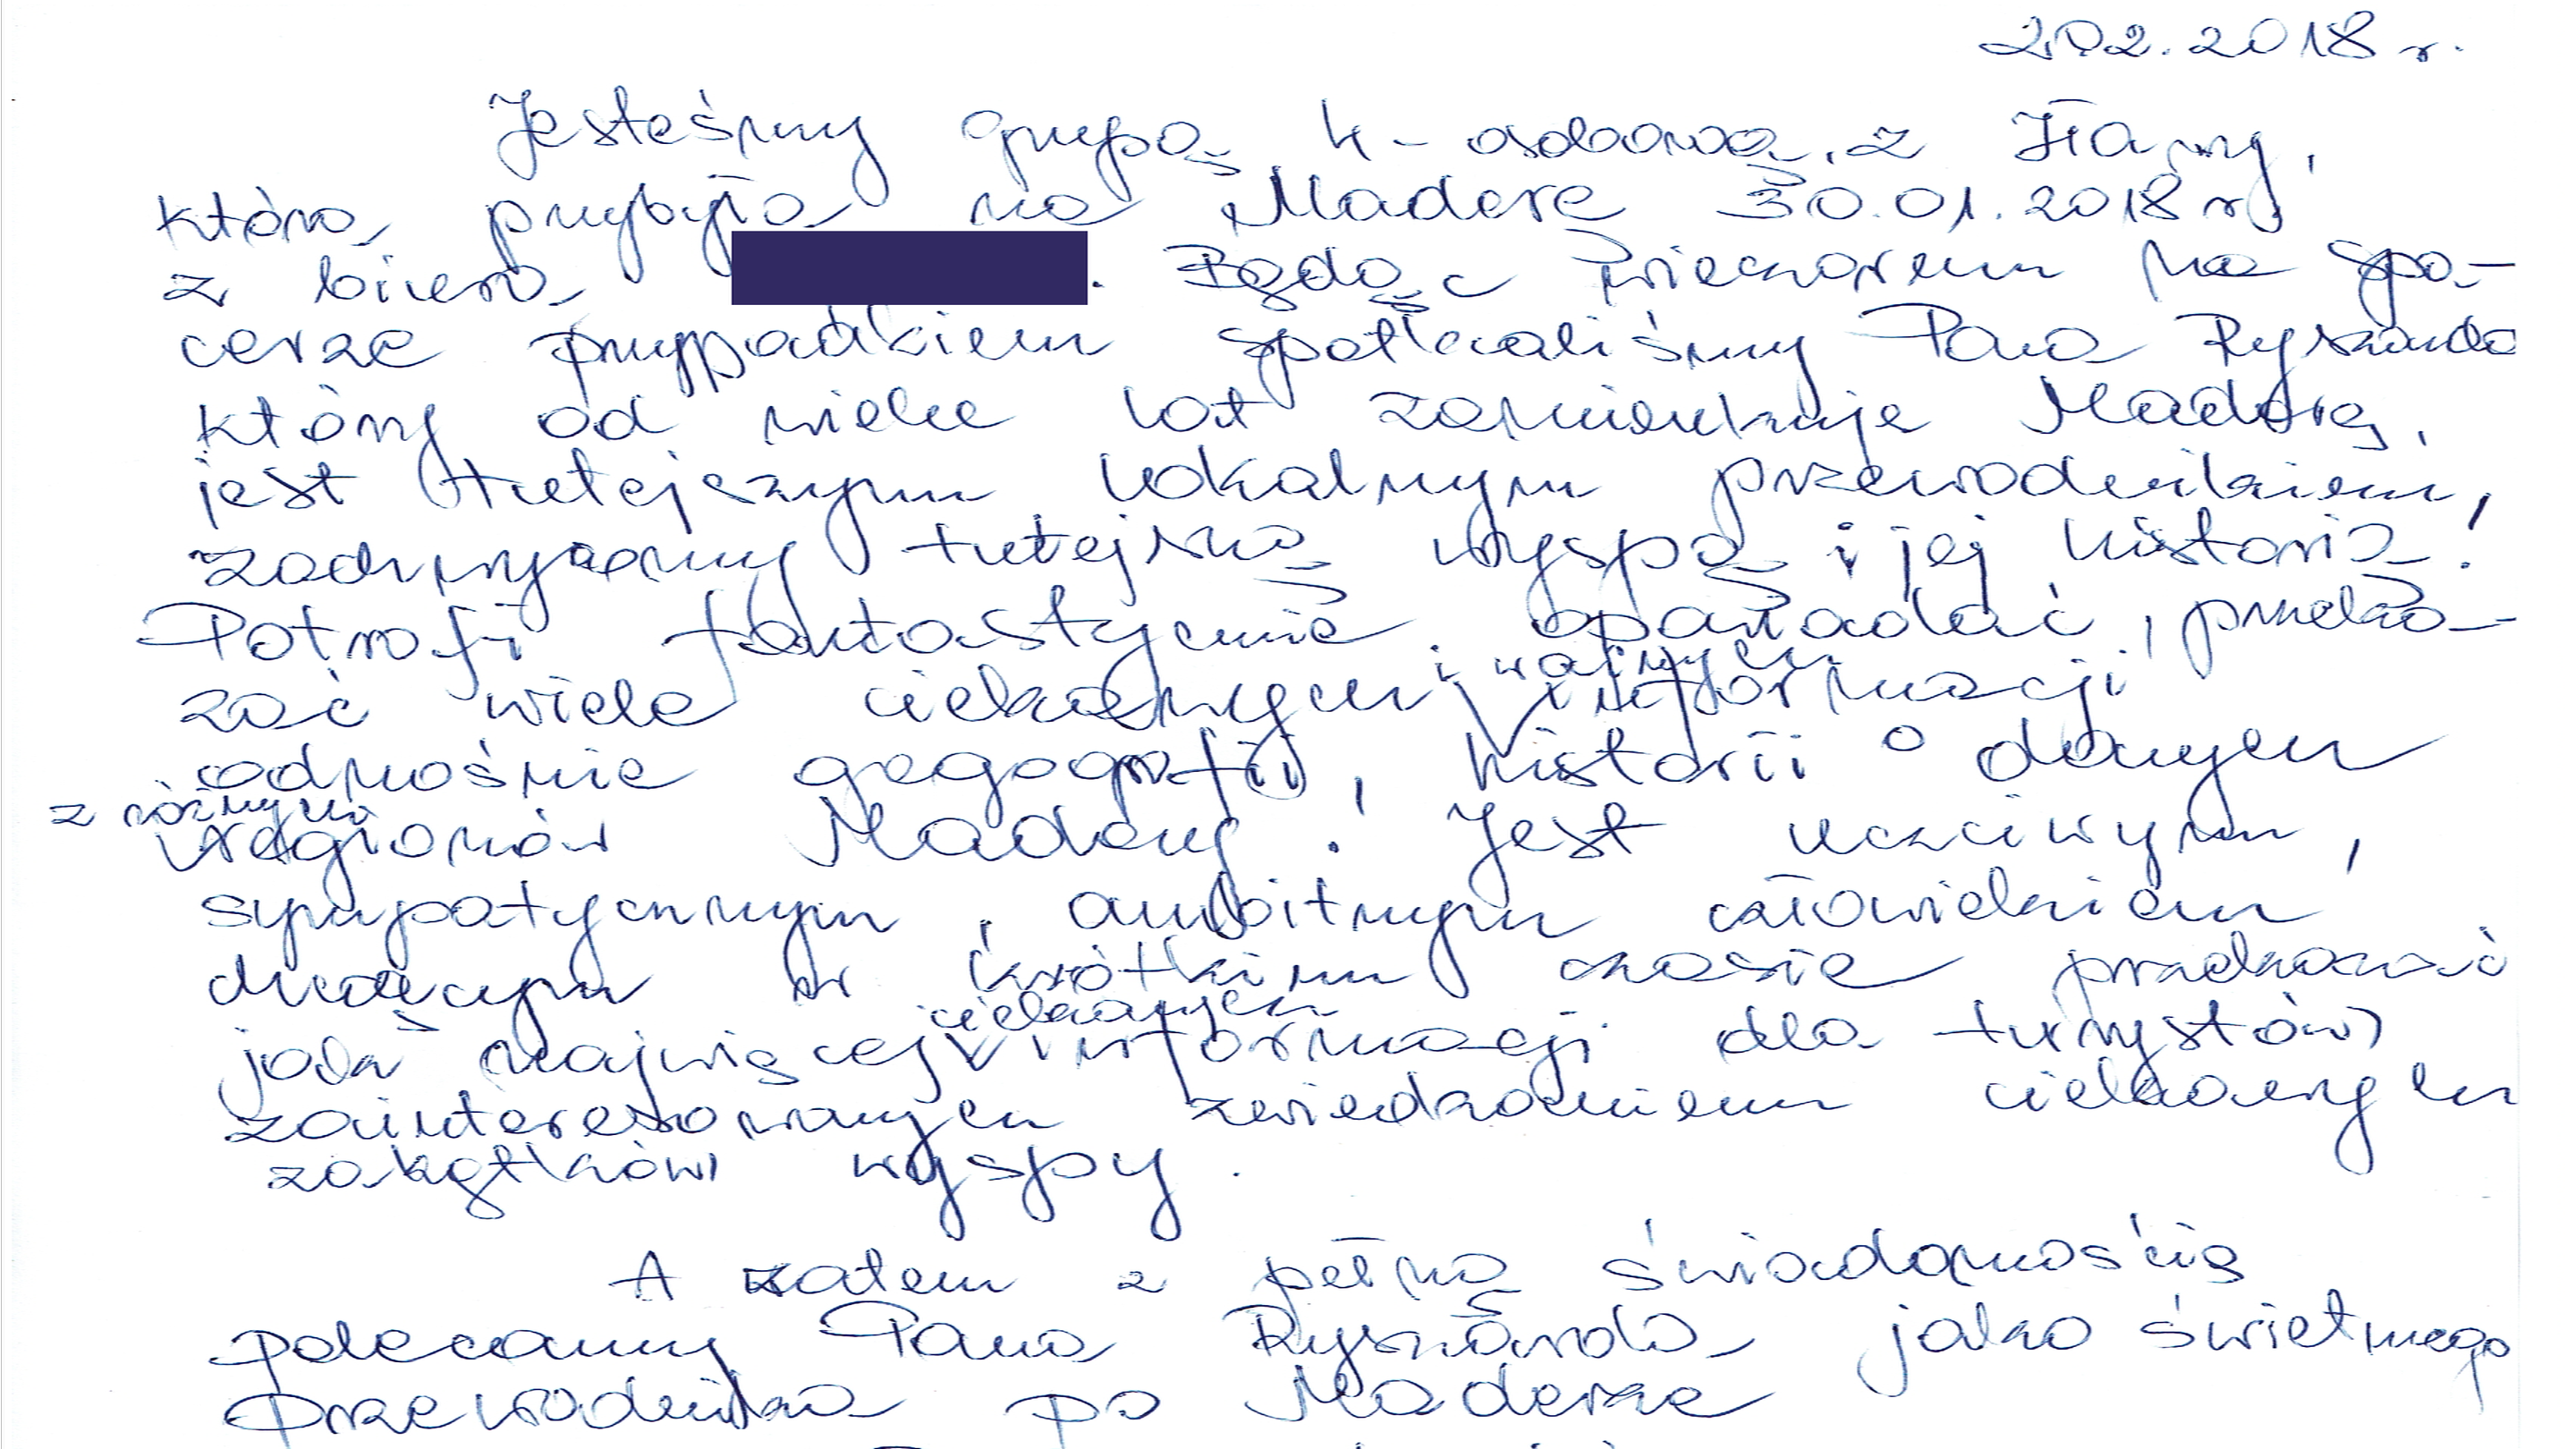 2.02.2018 r.
Jesteśmy grupą 4-osobową z Iławy,
która przybyła na Maderę 30.01.2018 r.
z biura . Będąc wieczorem na spa-
cerze przypadkiem spotkaliśmy Pana Ryszarda
który od wielu lat zamieszkuje Maderę,
jest tutejszym lokalnym przewodnikiem,
tutejszą wyspą i jej historią!
Potrafi fantastycznie opowiadać, przeka-
zać wiele ciekawych i ważnych informacji
odnośnie gegografii, historii o danych
z różnych regionów Madery! Jest uczciwym,
sympatycznym, ambitnym człowiekiem
chcącym w krótkim czasie przekazać
jak najwięcej ciekawych informacji dla turystów
zainteresowanych zwiedzaniem ciekawych
zakątków wyspy.
A zatem z pełną świadomością
polecamy Pana Ryszarda jako świetnego
przewodnika po Maderze